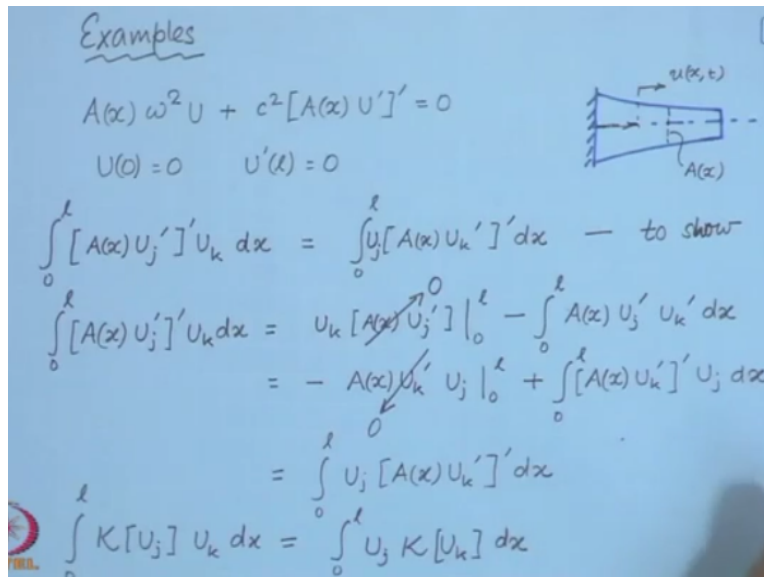 Examples
A(x) ω² U + c² [A(x) U']' = 0
U(0) = 0 U'(l) = 0
u(x,t)
A(x)
∫₀ˡ [A(x) U_j']' U_k dx = ∫₀ˡ U_j [A(x) U_k']' dx — to show
∫₀ˡ [A(x) U_j']' U_k dx = U_k [A(x) U_j'] |₀ˡ - ∫₀ˡ A(x) U_j' U_k' dx
0
= - A(x) U_k' U_j |₀ˡ + ∫₀ˡ [A(x) U_k']' U_j dx
0
= ∫₀ˡ U_j [A(x) U_k']' dx
∫₀ˡ K[U_j] U_k dx = ∫₀ˡ U_j K[U_k] dx